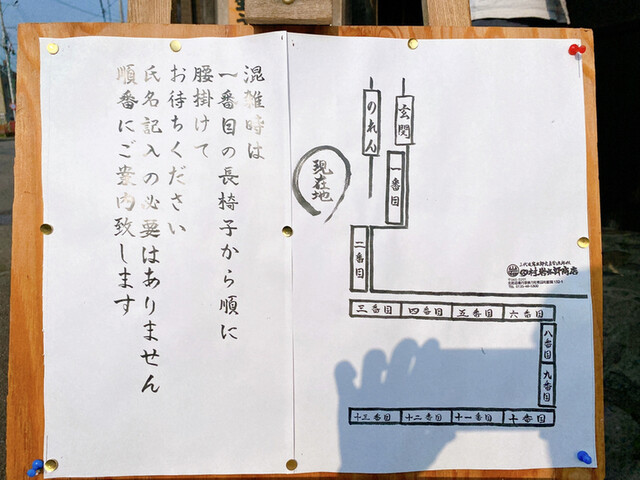 混雑時は
一番目の長椅子から順に
腰掛けて
お待ちください
氏名記入の必要はありません
順番にご案内致します
玄関
のれん
一番目
現在地
二番目
三番目 四番目 五番目 六番目
八番目
九番目
十三番目 十二番目 十一番目 十番目